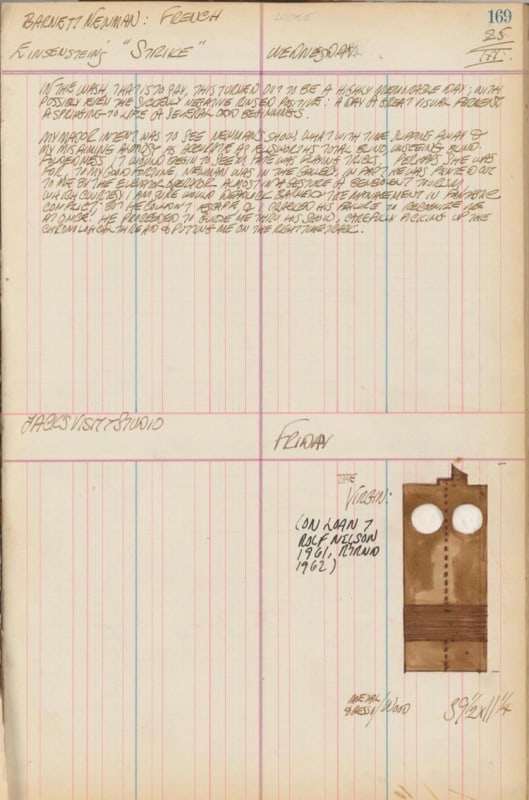 BARNETT NEWMAN: FRENCH
169
25
EINSENSTEIN'S "STRIKE"
WEDNESDAY
III.
IN THE WASH, THAT IS TO SAY, THIS TURNED OUT TO BE A HIGHLY MEMORABLE DAY; WITH
POSSIBLY EVEN THE SLIGHTLY NEGATIVE RINSED POSITIVE: A DAY OF GREAT VISUAL FERMENT,
A SPRINGING-TO-LIFE OF SEVERAL ODD BEGINNINGS.
MY MAJOR INTENT WAS TO SEE NEWMAN'S SHOW, WHAT WITH TIME SLIPPING AWAY &
MY MISAIMING ALMOST AS ACCURATE AS TOTAL BLIND, UNSEEING BLIND-
FOLDEDNESS IT WOULD BEGIN TO SEEM FATE WAS PLAYING TRICKS. PERHAPS SHE WAS
FOR, TO MY GOOD FORTUNE, NEWMAN WAS IN THE GALLERY. IN PART, HE WAS POINTED OUT
TO ME BY THE ELEVATOR OPERATOR ALMOST IN A GESTURE OF
WHICH I AM SURE WOULD THE MANAGEMENT IN
CONFLICT, BUT HE COULDN'T ESCAPE & HIS FAILURE TO RECOGNIZE ME
AT ONCE. HE PROCEEDED TO GUIDE ME THRU HIS SHOW, CAREFULLY PICKING UP THE
CHRONOLOGICAL THREAD & PUTTING ME ON THE RIGHT TIME TRACK.
JACK'S VISIT STUDIO
FRIDAY
THE
VIRGIN:
(ON LOAN
ROLF NELSON
1961, RTRND
1962)
METAL
/ WOOD
39 1/2 x 11 1/4